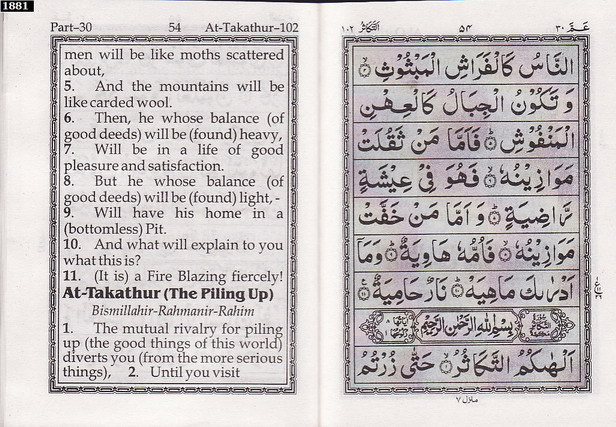 1881
Part–30 54 At-Takathur–102
men will be like moths scattered
about,
5. And the mountains will be
like carded wool.
6. Then, he whose balance (of
good deeds) will be (found) heavy,
7. Will be in a life of good
pleasure and satisfaction.
8. But he whose balance (of
good deeds) will be (found) light,-
9. Will have his home in a
(bottomless) Pit.
10. And what will explain to you
what this is?
11. (It is) a Fire Blazing fiercely!
At-Takathur (The Piling Up)
Bismillahir-Rahmanir-Rahim
1. The mutual rivalry for piling
up (the good things of this world)
diverts you (from the more serious
things), 2. Until you visit
التَّكَاثُر ١٠٢ ٥٤ عَمَّ ٣٠
النَّاسُ كَالْفَرَاشِ الْمَبْثُوْثِ
وَ تَكُوْنُ الْجِبَالُ كَالْعِهْنِ
الْمَنْفُوْشِ فَاَمَّا مَنْ ثَقُلَتْ
مَوَازِيْنُهٗ فَهُوَ فِیْ عِيْشَةٍ
رَّاضِيَةٍ وَ اَمَّا مَنْ خَفَّتْ
مَوَازِيْنُهٗ فَاُمُّهٗ هَاوِيَةٌ وَمَاۤ
اَدْرٰىكَ مَاهِيَهْ نَارٌ حَامِيَةٌ
بِسْمِ اللهِ الرَّحْمٰنِ الرَّحِيْمِ
اَلْهٰىكُمُ التَّكَاثُرُ حَتّٰى زُرْتُمُ
منزل ٧